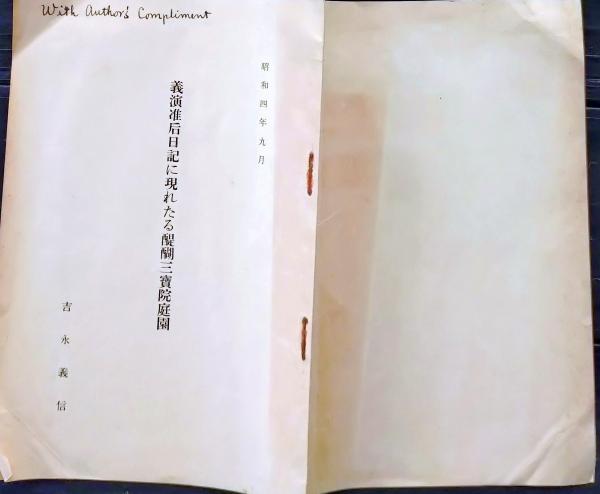 With Author's Compliment
昭和四年九月
義演准后日記に現れたる醍醐三寳院庭園
吉永義信